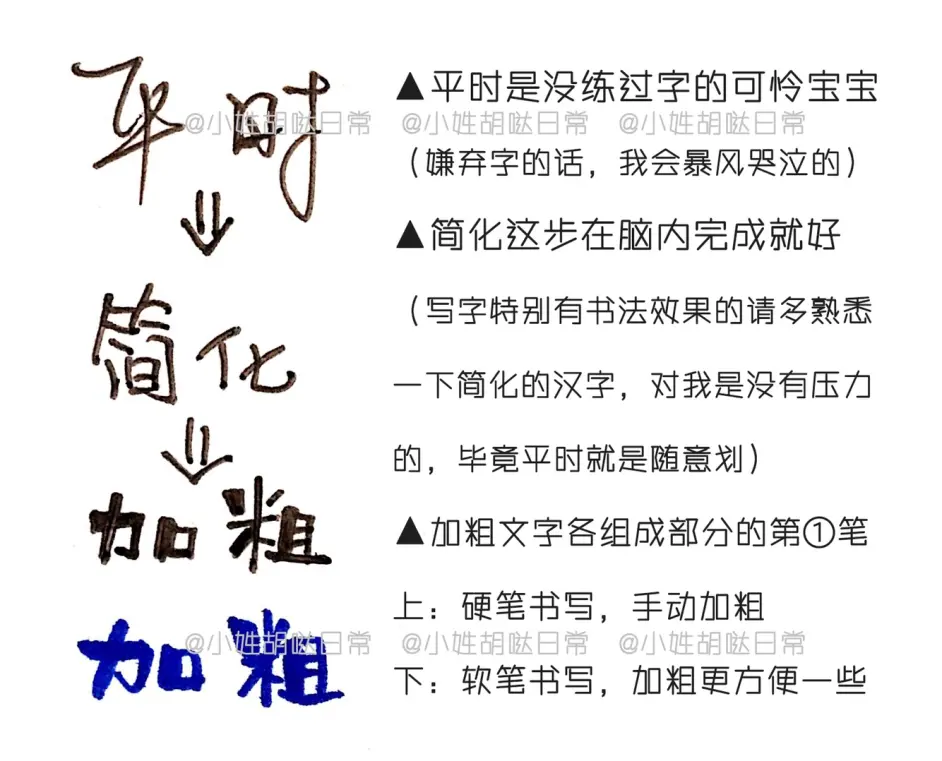 平时
▲平时是没练过字的可怜宝宝
@小姓胡哒日常 @小姓胡哒日常 @小姓胡哒日常
（嫌弃字的话，我会暴风哭泣的）
▲简化这步在脑内完成就好
简化
（写字特别有书法效果的请多熟悉
一下简化的汉字，对我是没有压力
的，毕竟平时就是随意划）
加粗
▲加粗文字各组成部分的第①笔
上：硬笔书写，手动加粗
加粗
@小姓胡哒日常 @小姓胡哒日常 @小姓胡哒日常
下：软笔书写，加粗更方便一些